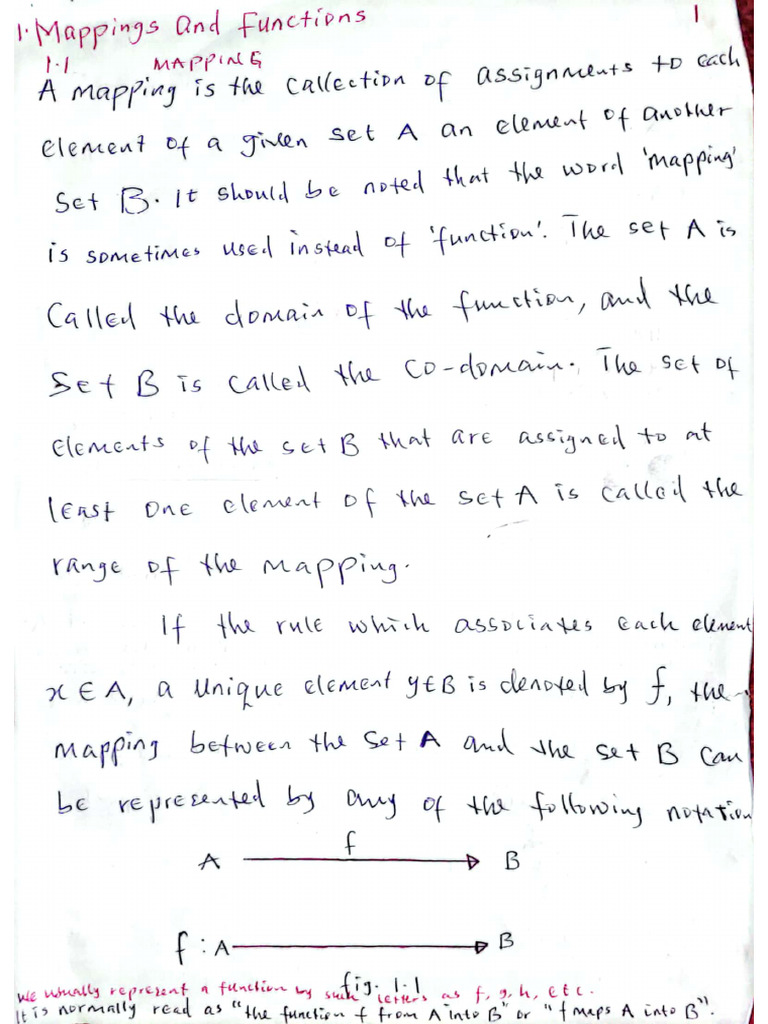 1. Mappings and Functions
1
1.1 MAPPING
A mapping is the collection of assignments to each
element of a given set A an element of another
set B. It should be noted that the word 'mapping'
is sometimes used instead of 'function'. The set A is
Called the domain of the function, and the
Set B is called the co-domain. The set of
elements of the set B that are assigned to at
least one element of the set A is called the
range of the mapping.
If the rule which associates each element
x ∈ A, a unique element y ∈ B is denoted by f, the
mapping between the set A and the set B can
be represented by any of the following notation
f
A ⟶ B
f : A ⟶ B
fig. 1.1
We usually represent a function by such letters as f, g, h, etc.
It is normally read as "the function f from A into B" or "f maps A into B".